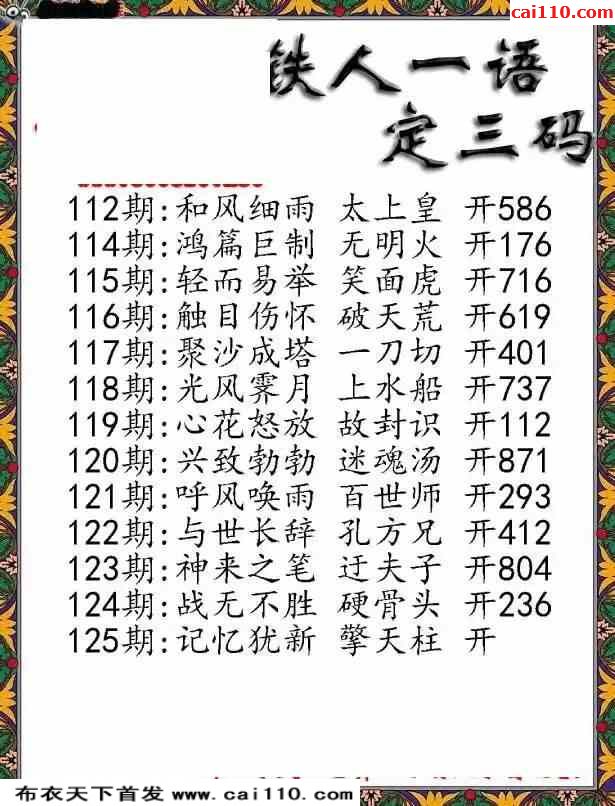 cai110.com
铁人一语
定三码
112期:和风细雨 太上皇 开586
114期:鸿篇巨制 无明火 开176
115期:轻而易举 笑面虎 开716
116期:触目伤怀 破天荒 开619
117期:聚沙成塔 一刀切 开401
118期:光风霁月 上水船 开737
119期:心花怒放 故封识 开112
120期:兴致勃勃 迷魂汤 开871
121期:呼风唤雨 百世师 开293
122期:与世长辞 孔方兄 开412
123期:神来之笔 迂夫子 开804
124期:战无不胜 硬骨头 开236
125期:记忆犹新 擎天柱 开
布衣天下首发 www.cai110.com